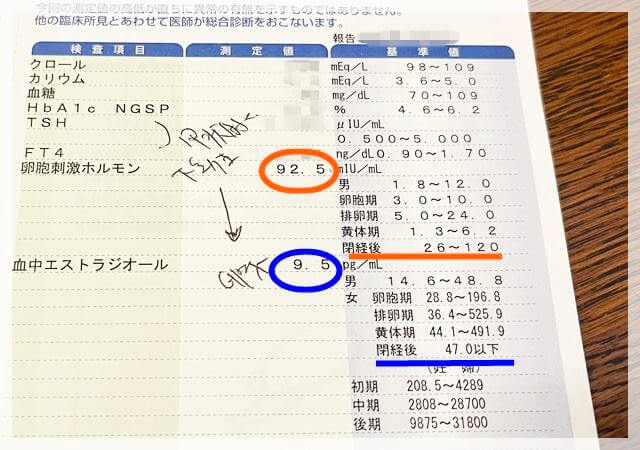 今回の測定値の高低が直ちに異常の有無を示すものではありません。
他の臨床所見とあわせて医師が総合診断をおこないます。
報告
検査項目 測定値 基準値
クロール mEq/L 98～109
カリウム mEq/L 3.6～5.0
血糖 mg/dL 70～109
HbA1c NGSP % 4.6～6.2
TSH μIU/mL
0.500～5.000
FT4 ng/dL 0.90～1.70
卵胞刺激ホルモン 92.5 mIU/mL
男 1.8～12.0
卵胞期 3.0～10.0
排卵期 5.0～24.0
黄体期 1.3～6.2
閉経後 26～120
血中エストラジオール 9.5 pg/mL
男 14.6～48.8
女 卵胞期 28.8～196.8
排卵期 36.4～525.9
黄体期 44.1～491.9
閉経後 47.0以下
(妊婦)
初期 208.5～4289
中期 2808～28700
後期 9875～31800